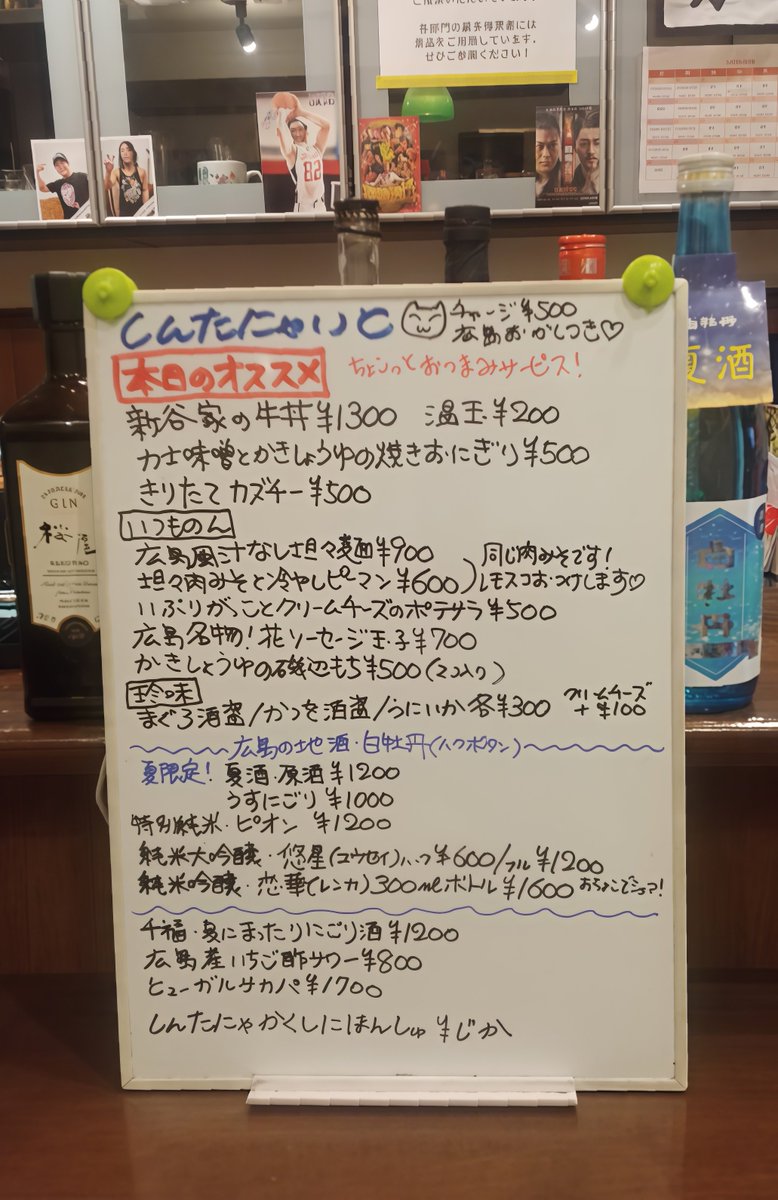 各部門の最多得票者には
景品をご用意しています。
ぜひご参加ください!
82
GIN
白牡丹
夏酒
白牡丹
しんたにゃいと
チャージ¥500
広島おかしつき♡
本日のオススメ
ちょこっとおつまみサービス!
新谷家の牛丼¥1300 温玉¥200
力士味噌とかきしょうゆの焼きおにぎり¥500
きりたてカズチー¥500
いつものん
広島風汁なし担々麺¥900
担々肉みそと冷やしピーマン¥600
同じ肉みそです!
レモスコおつけします♡
いぶりがっことクリームチーズのポテサラ¥500
広島名物!花ソーセージ玉子¥700
かきしょうゆの磯辺もち¥500(2コ入り)
珍味
まぐろ酒盗/かつを酒盗/うにいか各¥300
クリームチーズ
+¥100
広島の地酒・白牡丹(ハクボタン)
夏限定!夏酒・原酒¥1200
うすにごり¥1000
特別純米・ピオン ¥1200
純米大吟醸・悠星(ユウセイ)ハーフ¥600/フル¥1200
純米吟醸・恋華(レンカ)300mlボトル¥1600
千福・夏にまったりにごり酒¥1200
広島産いちご酢サワー¥800
ヒューガルサカパ¥1700
しんたにゃかくしにほんしゅ ¥じか